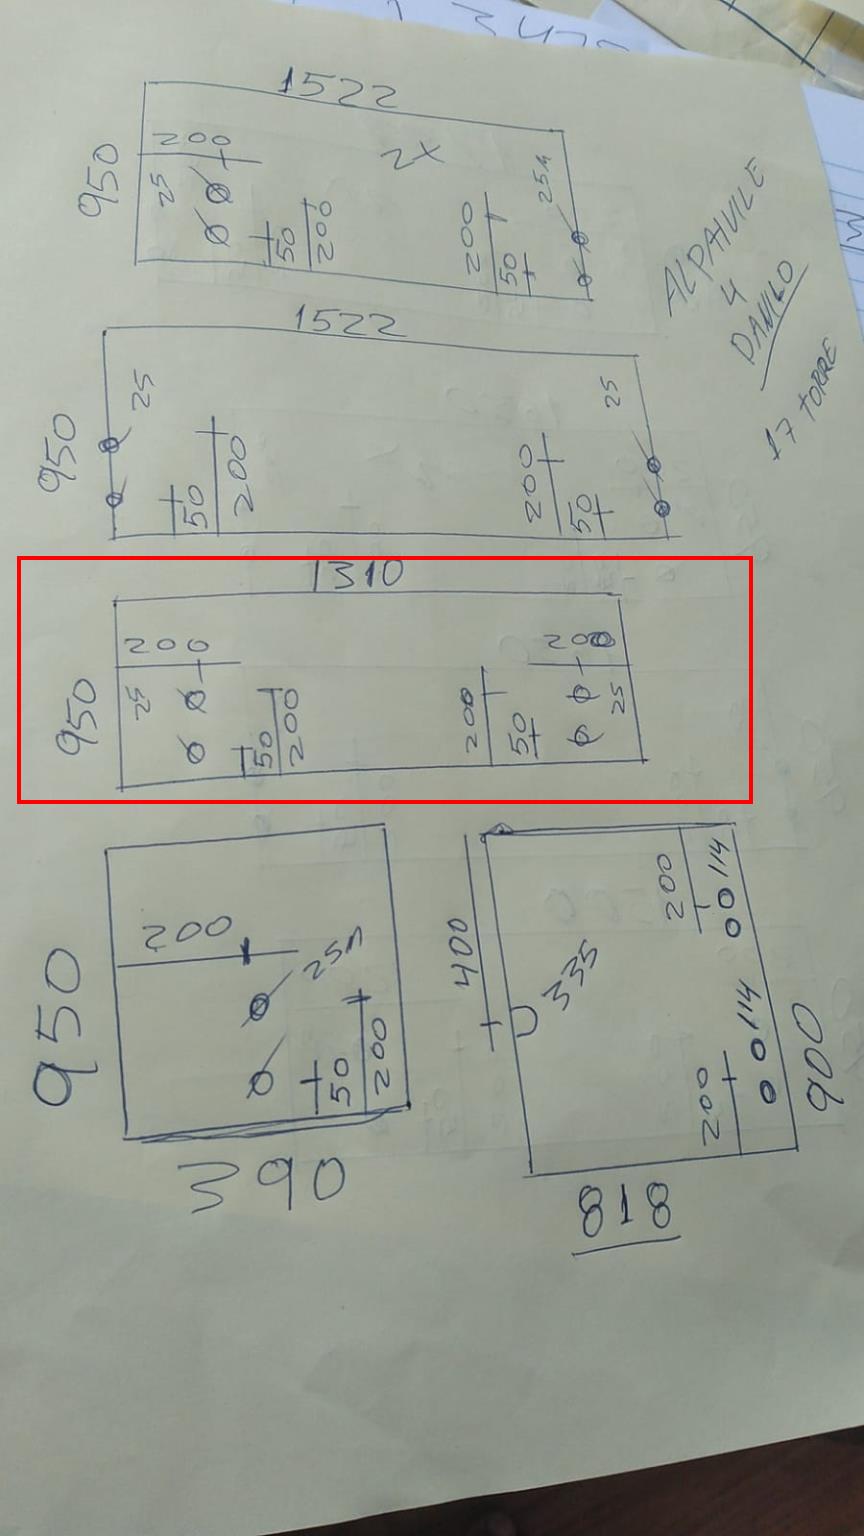 1522
950
200
2X
25
50
200
200
50
25n
ALPAIVILE
4
DANILO
17 TORRE
1522
950
25
50
200
200
50
25
1310
950
200
25
50
200
200
50
200
25
950
200
25n
50
200
390
400
335
200
114
200
114
900
818